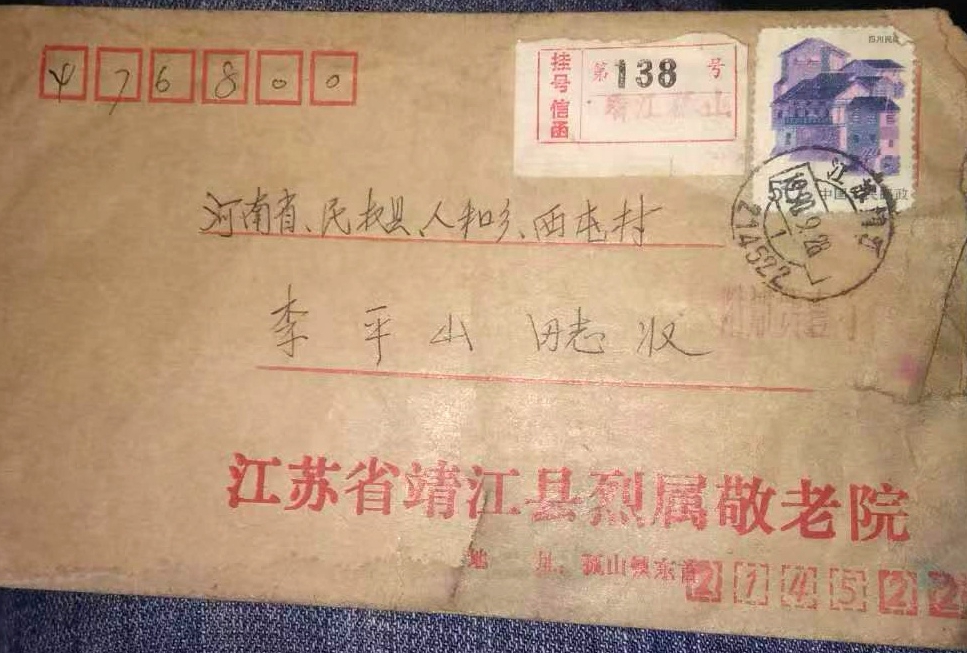 476800
挂号信函
第138号
靖江孤山
四川民居
中国人民邮政
1990.9.28
214522
河南省、民权县、人和乡、西屯村
李平山 同志收
江苏省靖江县烈属敬老院
地 址：孤山镇东首 214522